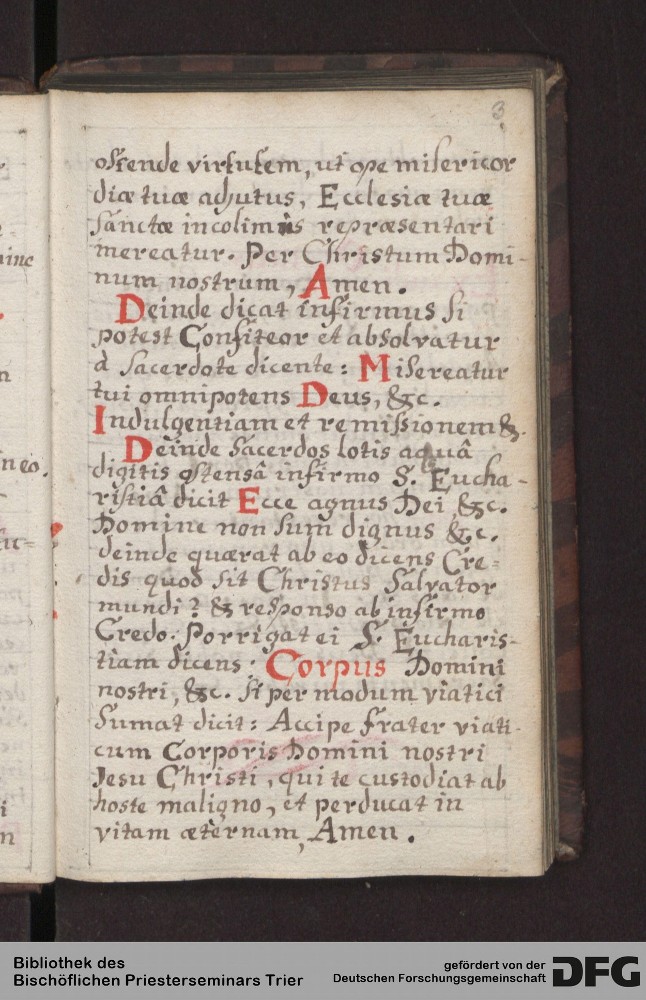 3
ostende virtutem, ut ope misericor
diæ tuæ adjutus, Ecclesiæ tuæ
sanctæ incolimis repræsentari
mereatur. Per Christum Domi-
num nostrum, Amen.
Deinde dicat infirmus si
potest Confiteor et absolvatur
à sacerdote dicente: Misereatur
tui omnipotens Deus, &c.
Indulgentiam et remissionem &.
Deinde sacerdos lotis aquâ
digitis ostensâ infirmo S. Eucha-
ristiâ dicit Ecce agnus Dei &c.
Domine non sum dignus &c.
deinde quærat ab eo dicens Cre-
dis quod sit Christus Salvator
mundi? & responso ab infirmo
Credo. Porrigat ei S. Eucharis-
tiam dicens: Corpus Domini
nostri, &c. si per modum viatici
sumat dicit: Accipe frater viati-
cum Corporis Domini nostri
Jesu Christi, qui te custodiat ab
hoste maligno, et perducat in
vitam æternam, Amen.
Bibliothek des
Bischöflichen Priesterseminars Trier
gefördert von der
Deutschen Forschungsgemeinschaft
DFG